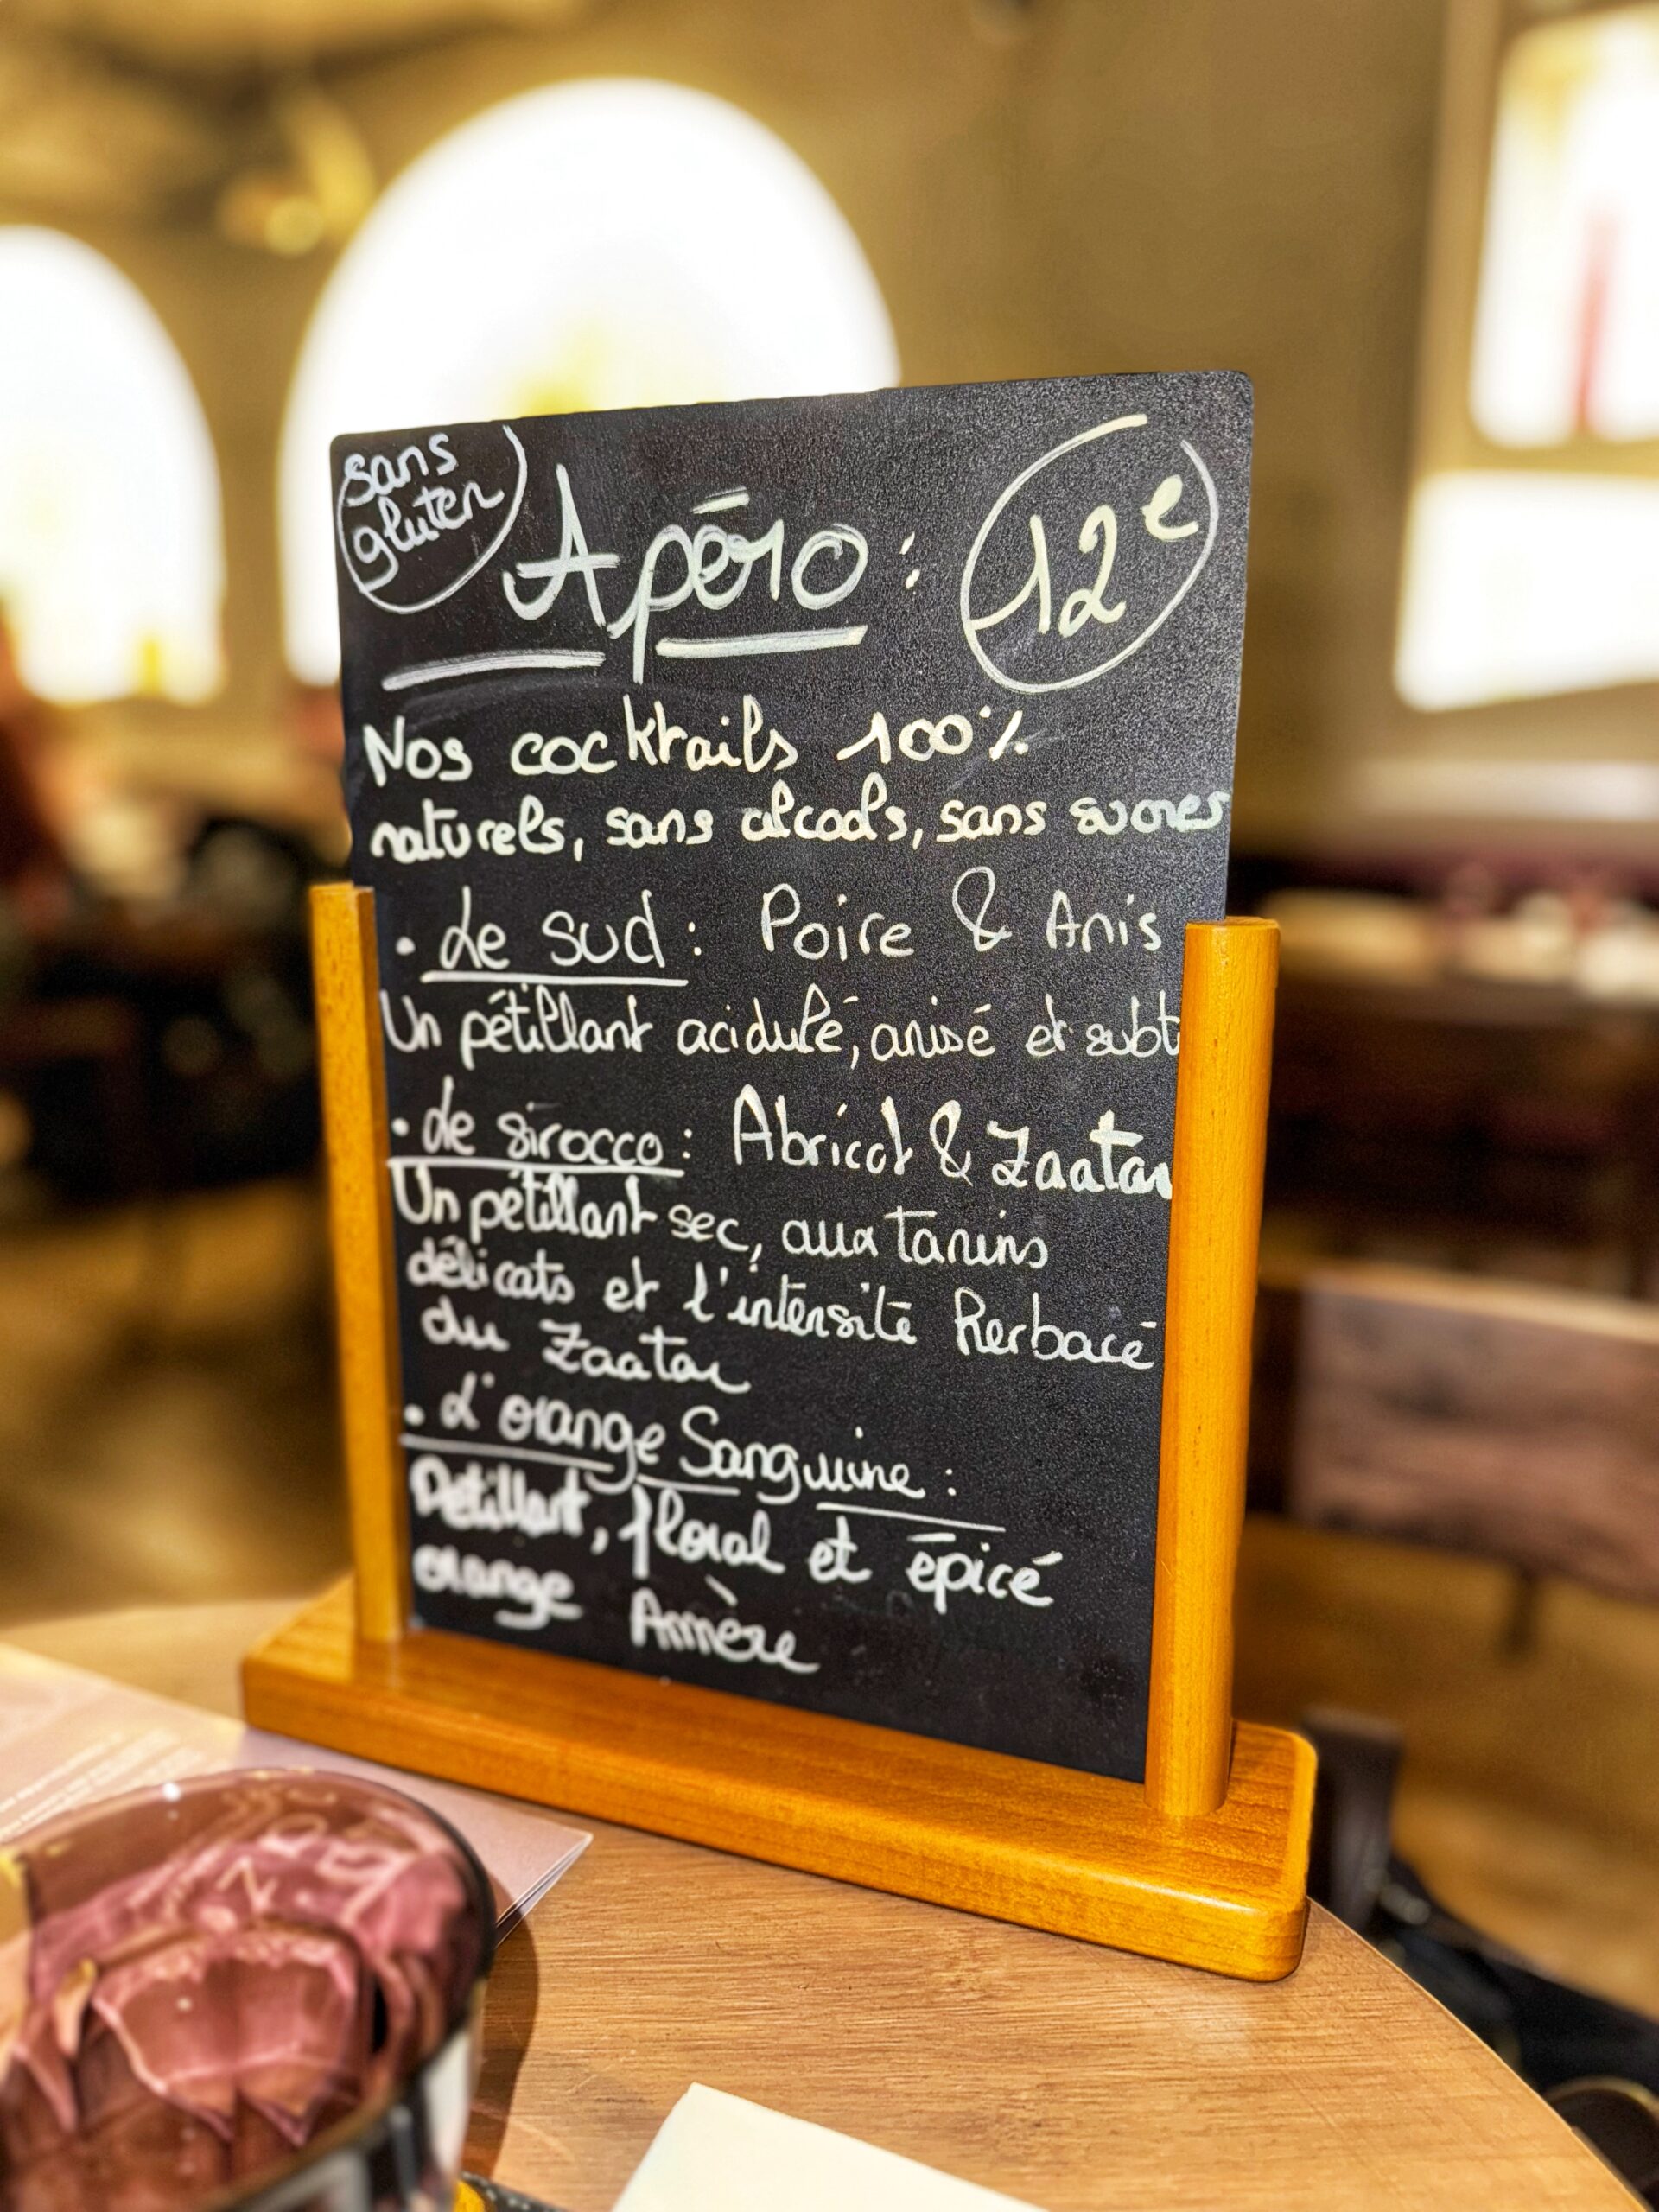 sans
gluten
Apéro :
12€
Nos cocktails 100%
naturels, sans alcools, sans sucres
• Le Sud : Poire & Anis
Un pétillant acidulé, anisé et subt
• Le sirocco : Abricot & Zaatar
Un pétillant sec, aux tanins
délicats et l'intensité herbacé
du Zaatar
• L'orange Sanguine :
Pétillant, floral et épicé
orange Amère